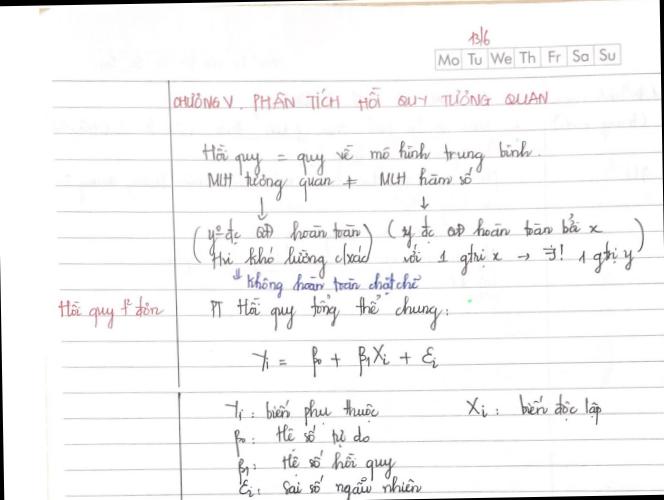 13/6
Mo Tu We Th Fr Sa Su
CHƯƠNG V. PHÂN TÍCH HỒI QUY TƯƠNG QUAN
Hồi quy = quy về mô hình trung bình.
MLH tương quan ≠ MLH hàm số
↓ ↓
(y đc QĐ hoàn toàn) (y đc QĐ hoàn toàn bởi x
khó lường c/xác) với 1 gtrị x → ∃! 1 gtrị y)
↓ không hoàn toàn chặt chẽ
Hồi quy đơn PT Hồi quy tổng thể chung:
Yi = β0 + β1Xi + εi
Yi: biến phụ thuộc Xi: biến độc lập
β0: Hệ số tự do
β1: Hệ số hồi quy
εi: Sai số ngẫu nhiên